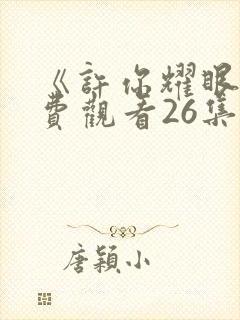 《許你耀眼
費觀看26集
唐穎小